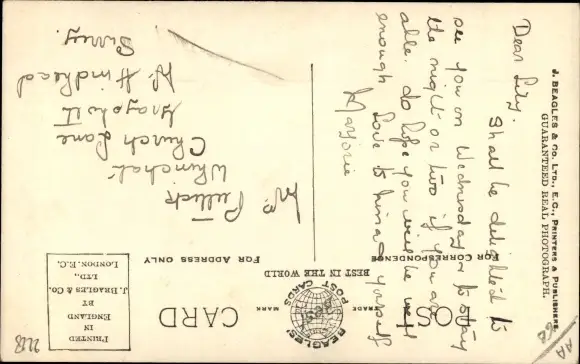 J. BEAGLES & CO. LTD., E.C., PRINTERS & PUBLISHERS
GUARANTEED REAL PHOTOGRAPH.
POST CARD
TRADE MARK
BEAGLES'
BEST
POST CARDS
BEST IN THE WORLD
FOR CORRESPONDENCE
FOR ADDRESS ONLY
PRINTED
IN
ENGLAND
BY
J. BEAGLES & CO.
LTD.,
LONDON. E.C.
Dear Lily.
Shall be delighted to
see you on Wednesday & to stay
the night or two if you are
able. do hope you will be well
enough Love to
Marjorie
Mrs
Whinchat
Church Lane
Grayshott
Nr Hindhead
Surrey.
AA